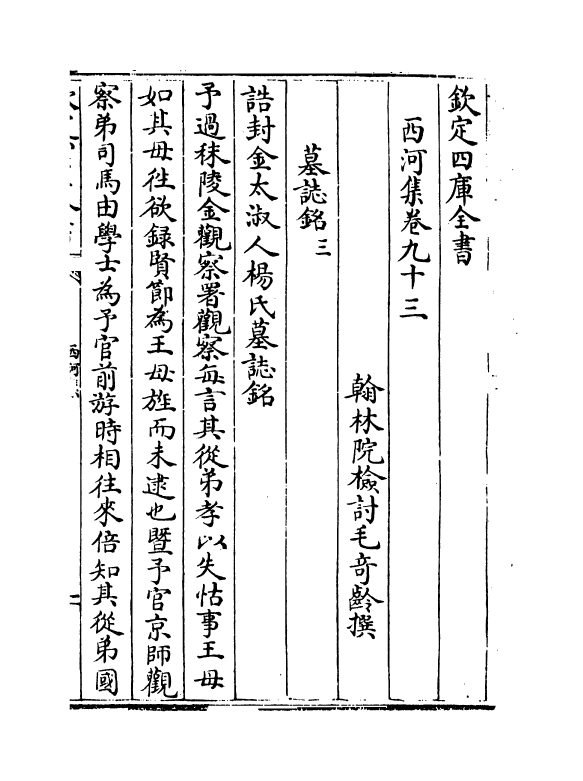 欽定四庫全書
西河集卷九十三
翰林院檢討毛奇齡撰
墓誌銘三
誥封金太淑人楊氏墓誌銘
予過秣陵金觀察署觀察每言其從弟孝以失怙事王母
如其母徃欲録賢節為王母旌而未逮也暨予官京師觀
察弟司馬由學士為予官前游時相往來倍知其從弟國